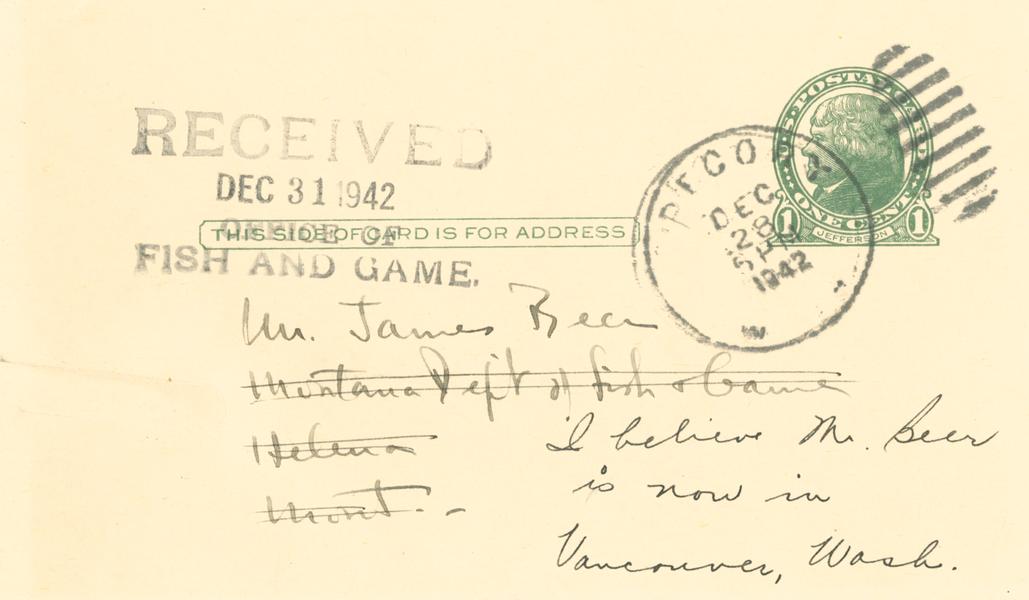 U.S. POSTAL CARD
ONE CENT
1 JEFFERSON 1
RECEIVED
DEC 31 1942
OFFICE OF
FISH AND GAME.
THIS SIDE OF CARD IS FOR ADDRESS
DEC
28
5 PM
1942
Mr. James Beer
Montana Dept of Fish & Game
Helena
Mont.
I believe Mr. Beer
is now in
Vancouver, Wash.